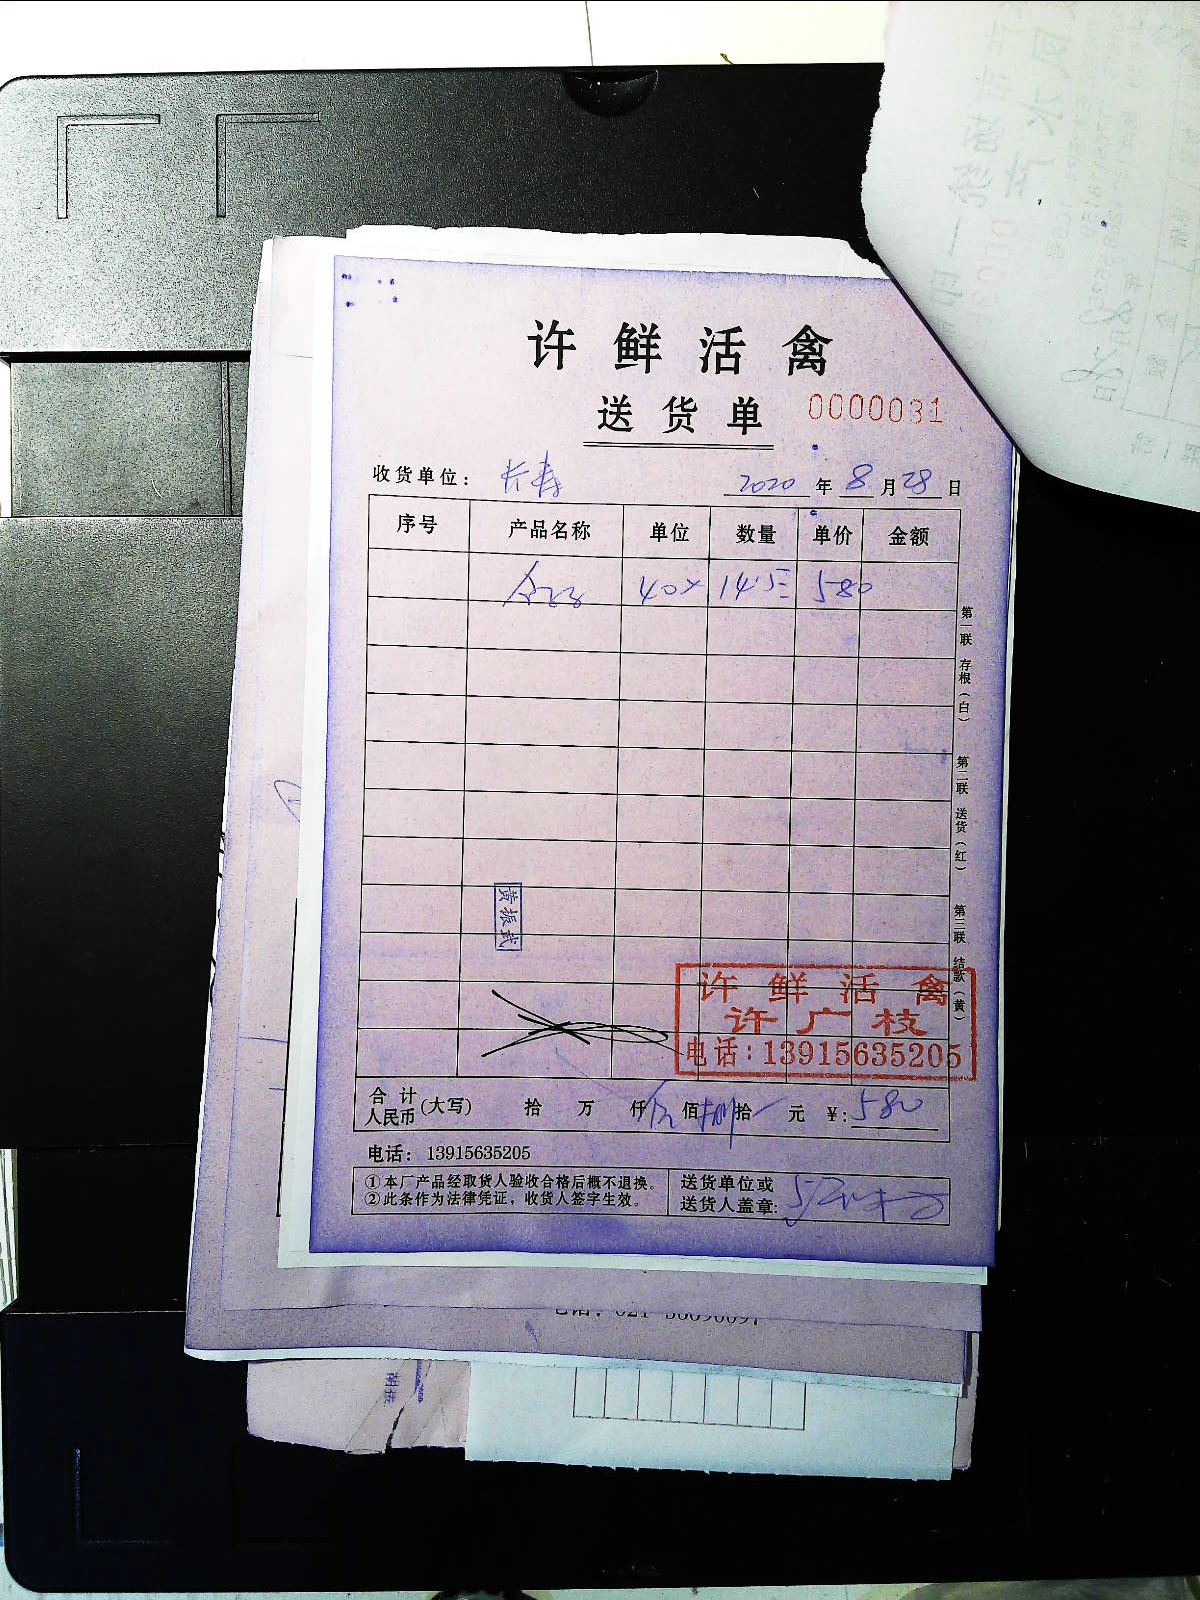 许鲜活禽
送货单 0000031
收货单位： 长寿 2020 年 8 月 28 日
序号 产品名称 单位 数量 单价 金额
40× 14.5= 580
第一联 存根（白） 第二联 送货（红） 第三联 结款（黄）
黄振武
许鲜活禽
许广枝
电话：13915635205
合计人民币 (大写) 拾 万 仟 佰 拾 元 ¥: 580
电话： 13915635205
①本厂产品经取货人验收合格后概不退换。
②此条作为法律凭证，收货人签字生效。
送货单位或
送货人盖章: